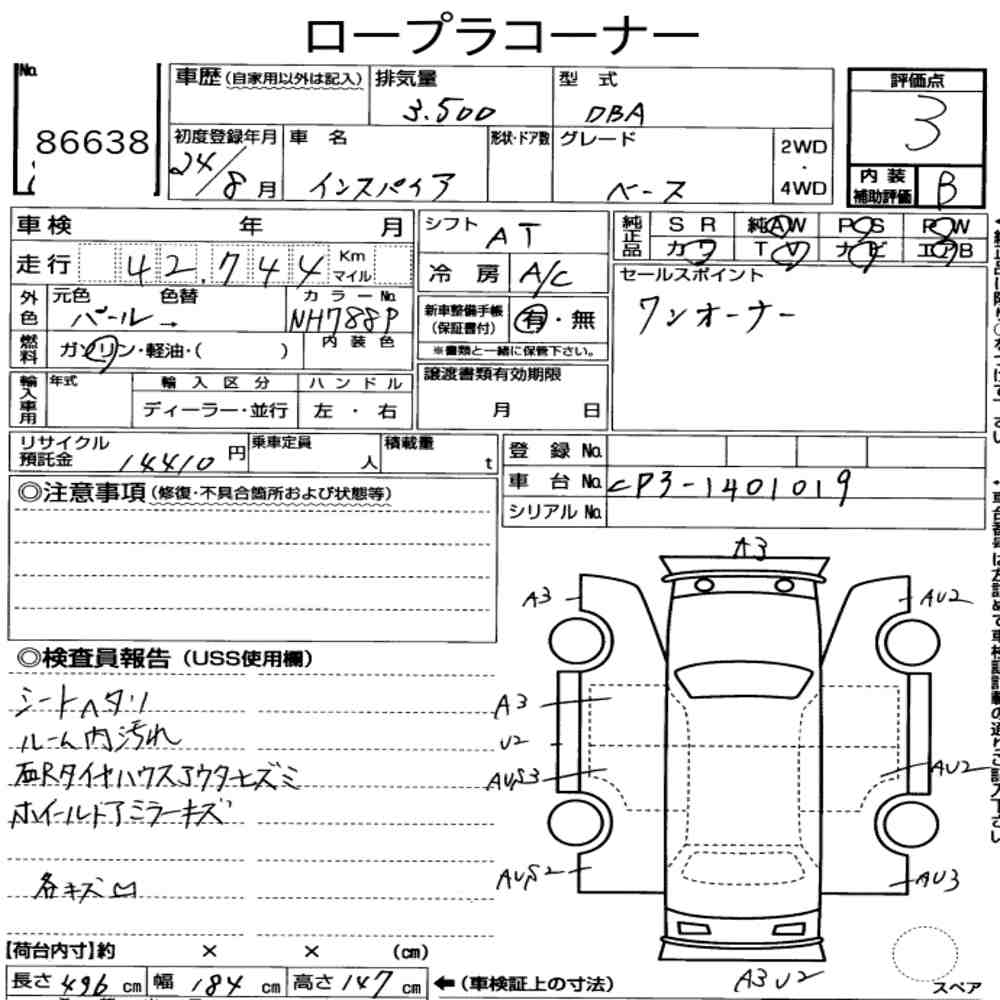 ロープラコーナー
No.
86638
車歴(自家用以外は記入)
排気量
3.500
型 式
DBA
初度登録年月
24/8 月
車 名
インスパイア
形状・ドア数
グレード
ベース
2WD
・
4WD
評価点
3
内装
補助評価
B
車検 年 月
走行 42.744 Km
マイル
外色
元色 色替
パール→
カラーNo.
NH788P
燃料
ガソリン・軽油・( )
内装色
輸入車用
年式
輸入区分
ディーラー・並行
ハンドル
左・右
シフト AT
冷房 A/C
新車整備手帳
(保証書付)
有・無
※書類と一緒に保管下さい。
譲渡書類有効期限
月 日
純正品
SR 純AW PS PW
カワ TV ナビ エアB
セールスポイント
ワンオーナー
リサイクル
預託金 14410 円
乗車定員
人
積載量
t
登録No.
車台No. CP3-1401019
シリアルNo.
◎注意事項(修復・不具合箇所および状態等)
◎検査員報告(USS使用欄)
シートヘタリ
ルーム内汚れ
右Rタイヤハウスアウターヒズミ
ホイールドアミラーキズ
各キズ凹
A3
A3
AU2
A3
U2
AUS3
AU2
AUS2
AU3
A3 U2
スペア
【荷台内寸】約 × × (cm)
長さ 496 cm 幅 184 cm 高さ 147 cm ←(車検証上の寸法)